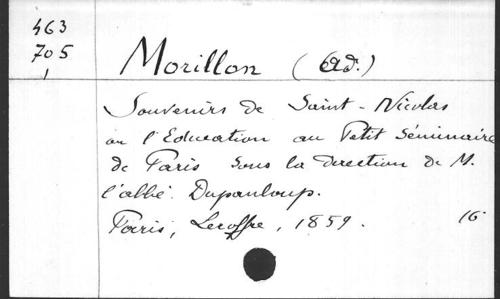 463
705
1
Morillon (Ad.)
Souvenirs de Saint-Nicolas
ou l'Education au Petit Séminaire
de Paris sous la direction de M.
l'abbé Dupanloup.
Paris, Lecoffre, 1859. 16